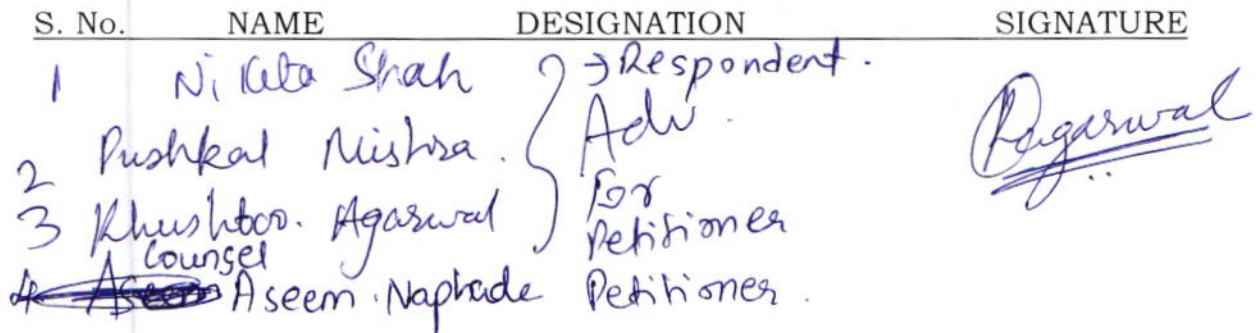 S. No. NAME DESIGNATION SIGNATURE
1 Nikita Shah → Respondent.
2 Pushkal Mishra. Adv.
3 Khushboo. Agarwal For Petitioner
Counsel
4 Aseem. Naphade Petitioner.
Kagarwal